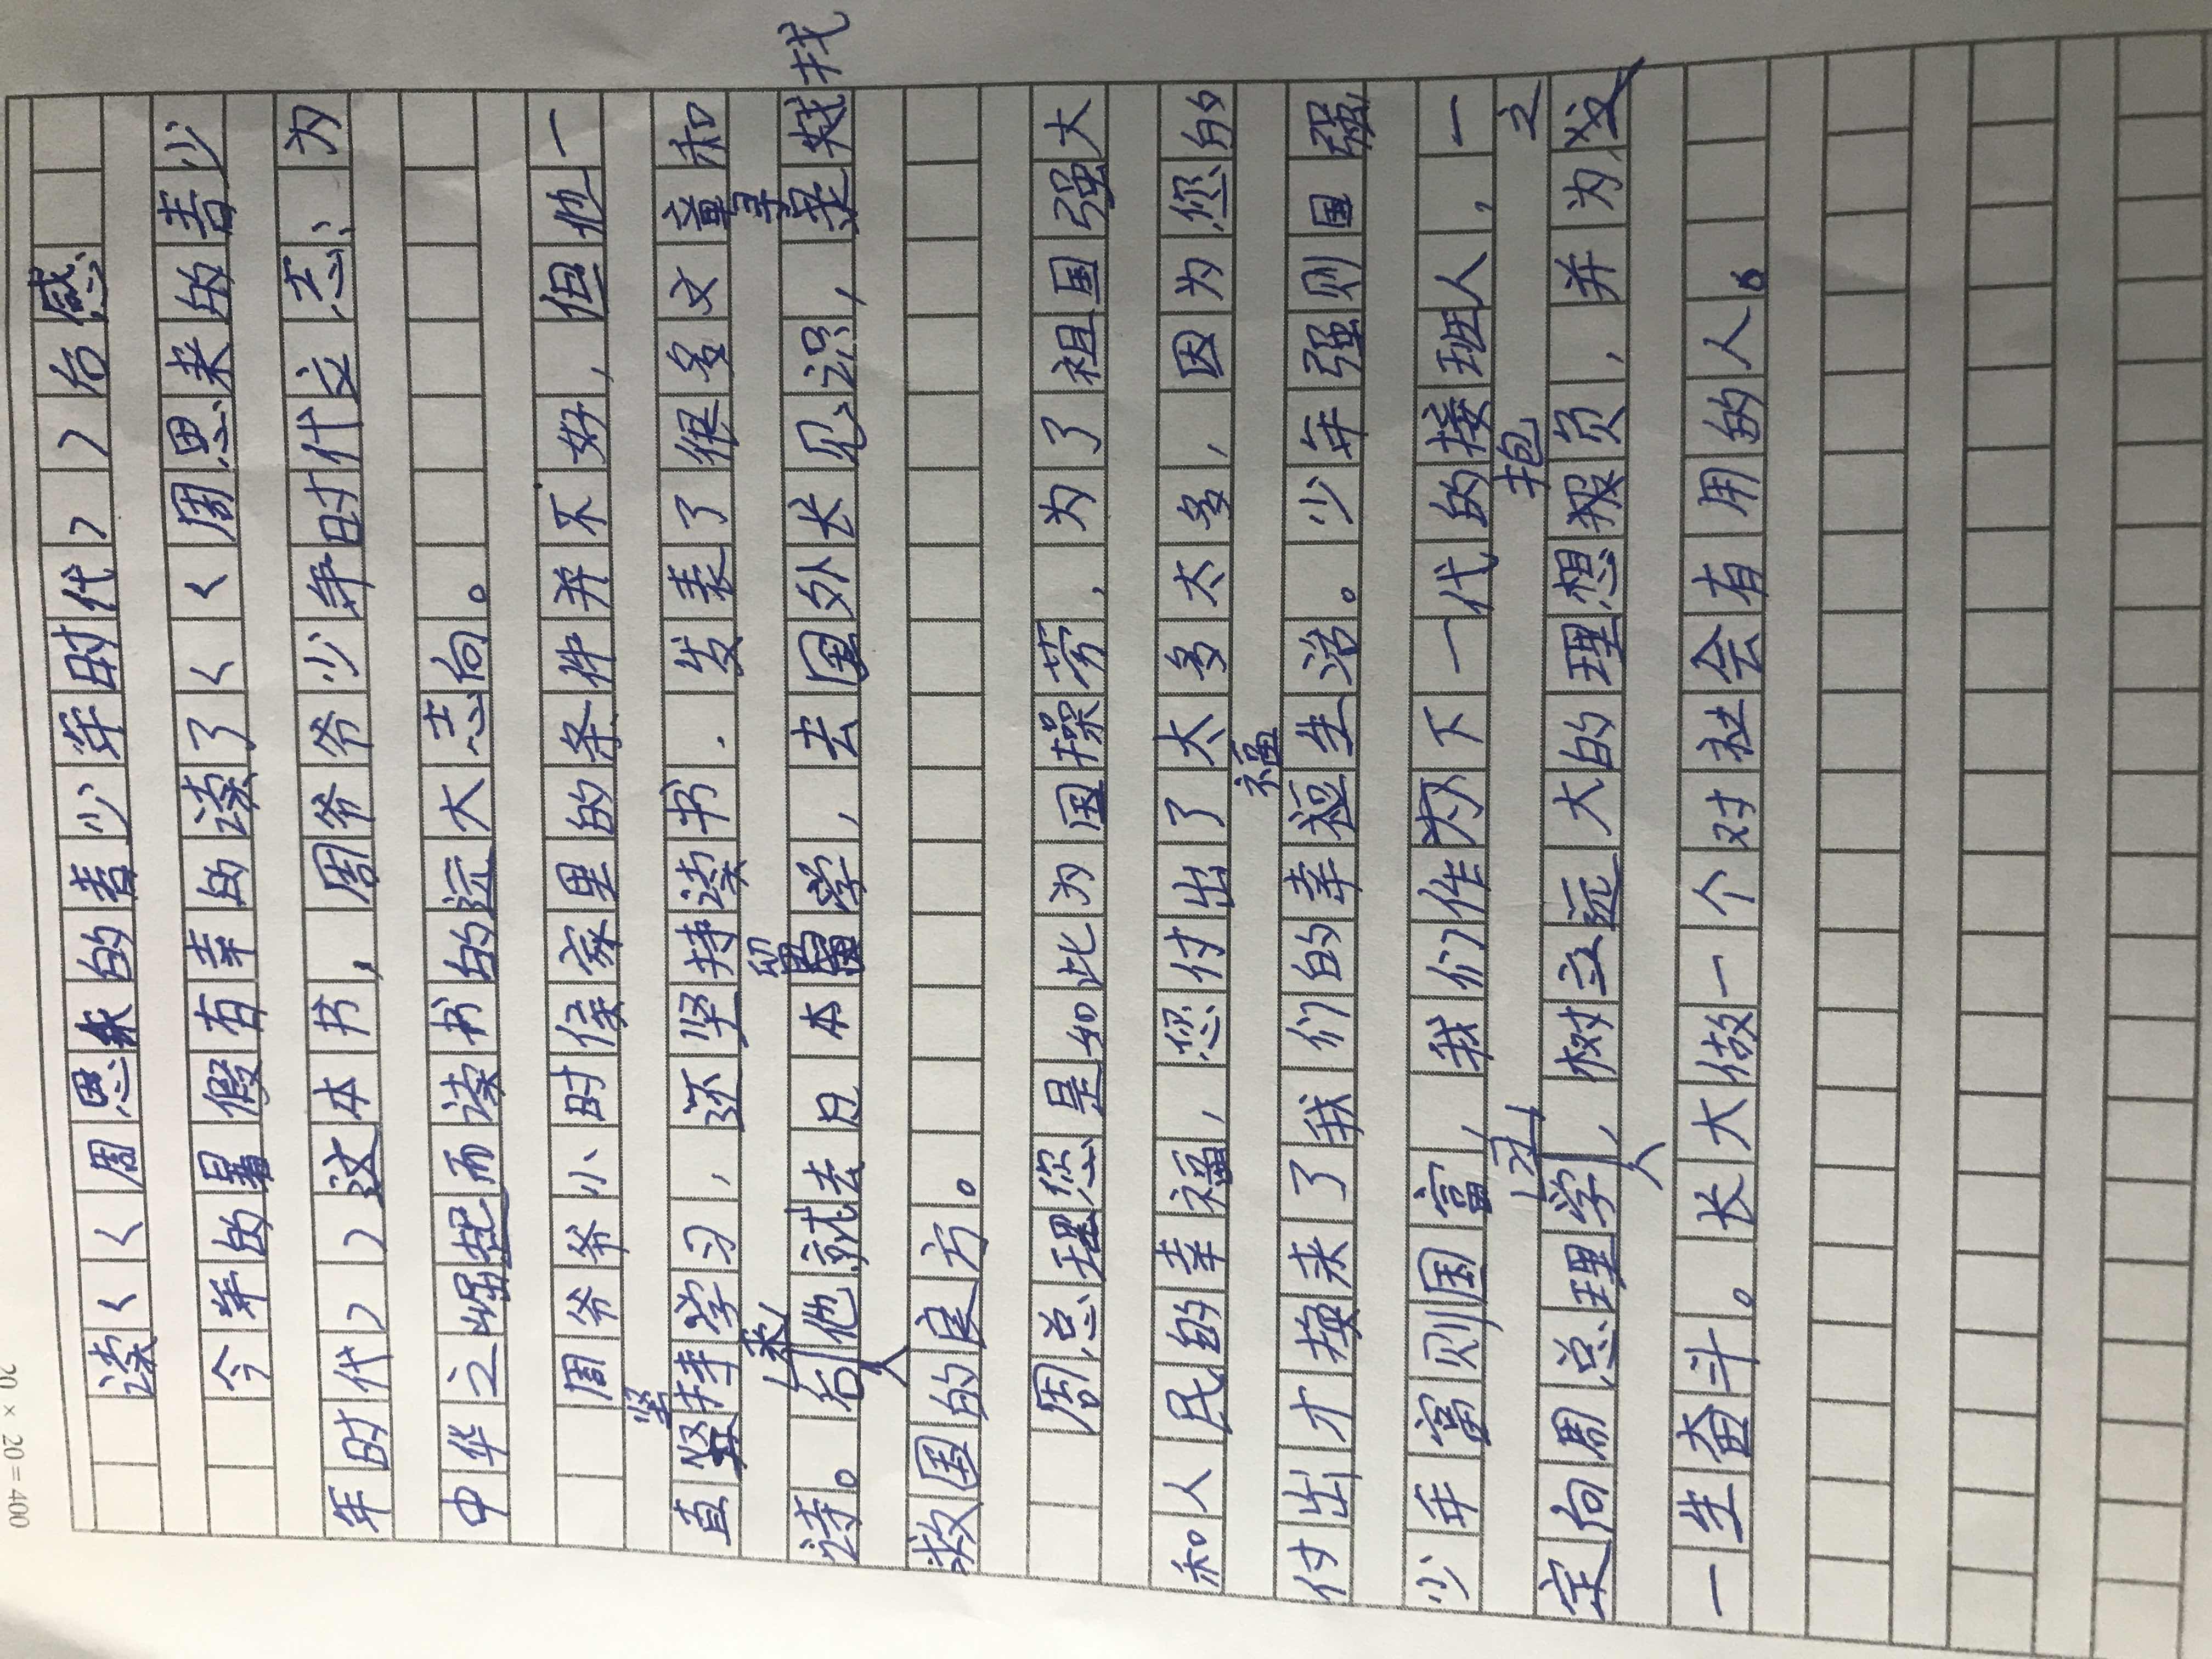 读《周恩来的青少年时代》后感
今年的暑假有幸的读了《周恩来的青少
年时代》这本书，周爷爷少年时代立志、为
中华之崛起而读书的远大志向。
周爷爷小时侯家里的条件并不好，但他一
直坚持学习，还坚持读书．发表了很多文章和
诗。后来他就去日本留学，去国外长见识，寻找
救国的良方。
周总理您是如此为国操劳，为了祖国强大
和人民的幸福，您付出了太多太多，因为您的
付出才换来了我们的幸福生活。少年强则国强
少年富则国富，我们作为下一代的接班人，一
定向周总理学习，树立远大的理想抱负，并为之
一生奋斗。长大做一个对社会有用的人。
20×20=400